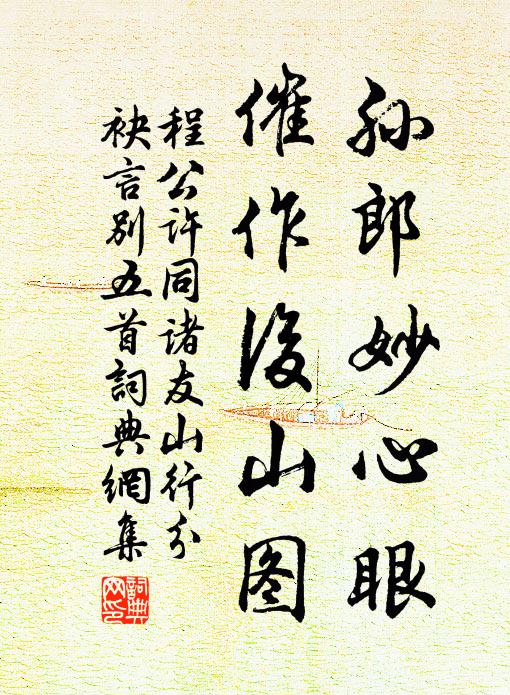 孙郎妙心眼
催作後山图
程公许同诸友山行分
袂言别五首詞典網集
詞典